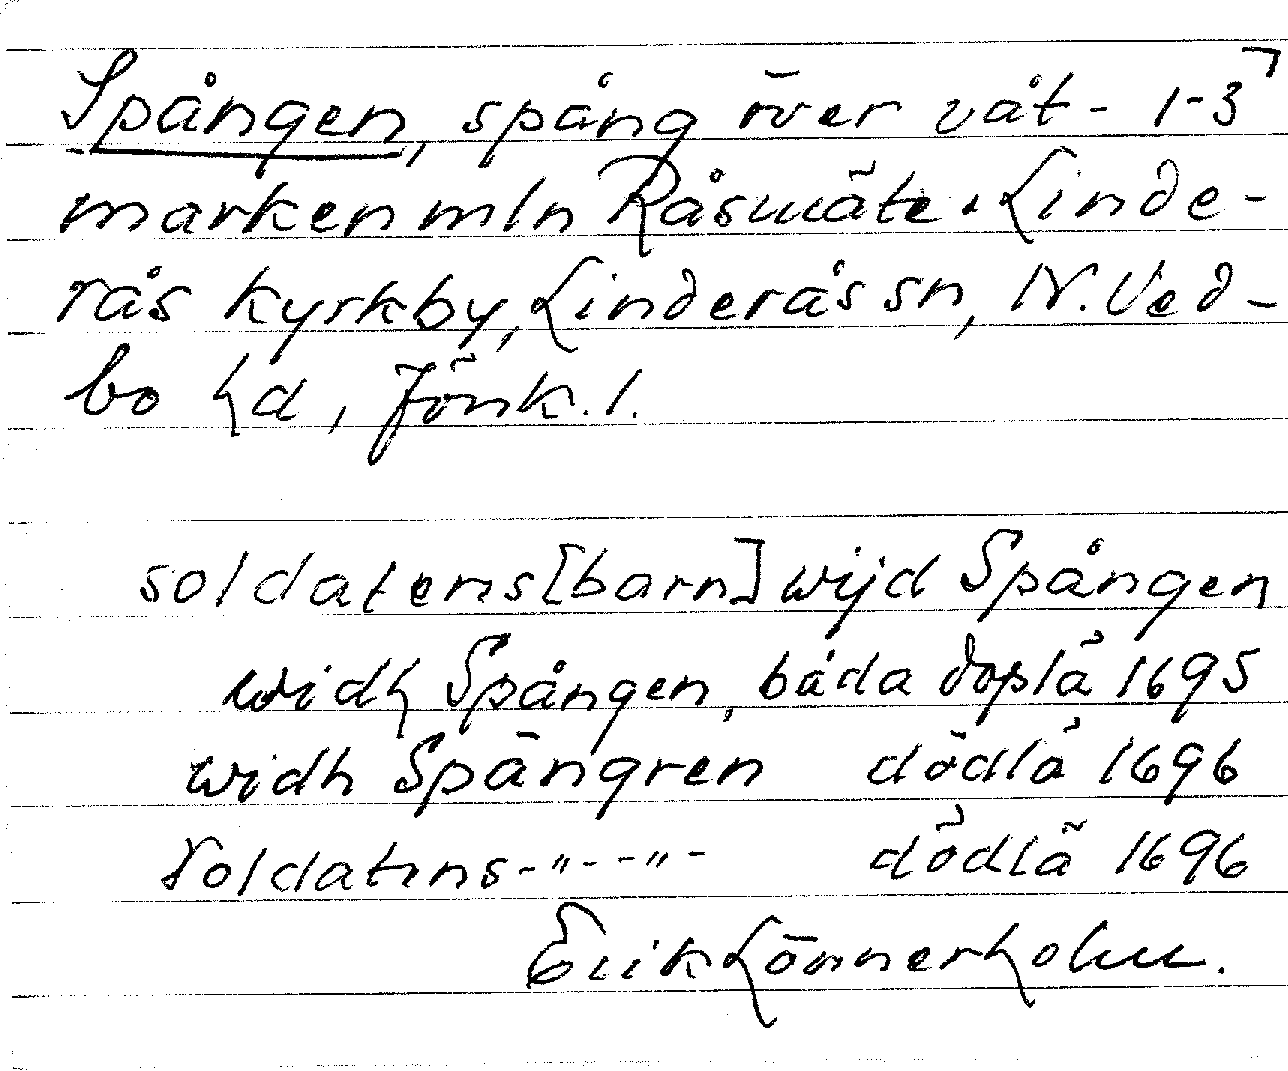 Spången, spång över våt- 1-3
marken mln Råsmäte . Linde-
rås kyrkby, Linderås sn, N. Ved-
bo hd, Jönk. l.
soldatens [barn] wijd Spången
widh Spången, båda doplä 1695
widh Spångren dödlä 1696
Soldatens -"- -"- dödlä 1696
Erik Lönnerholm.